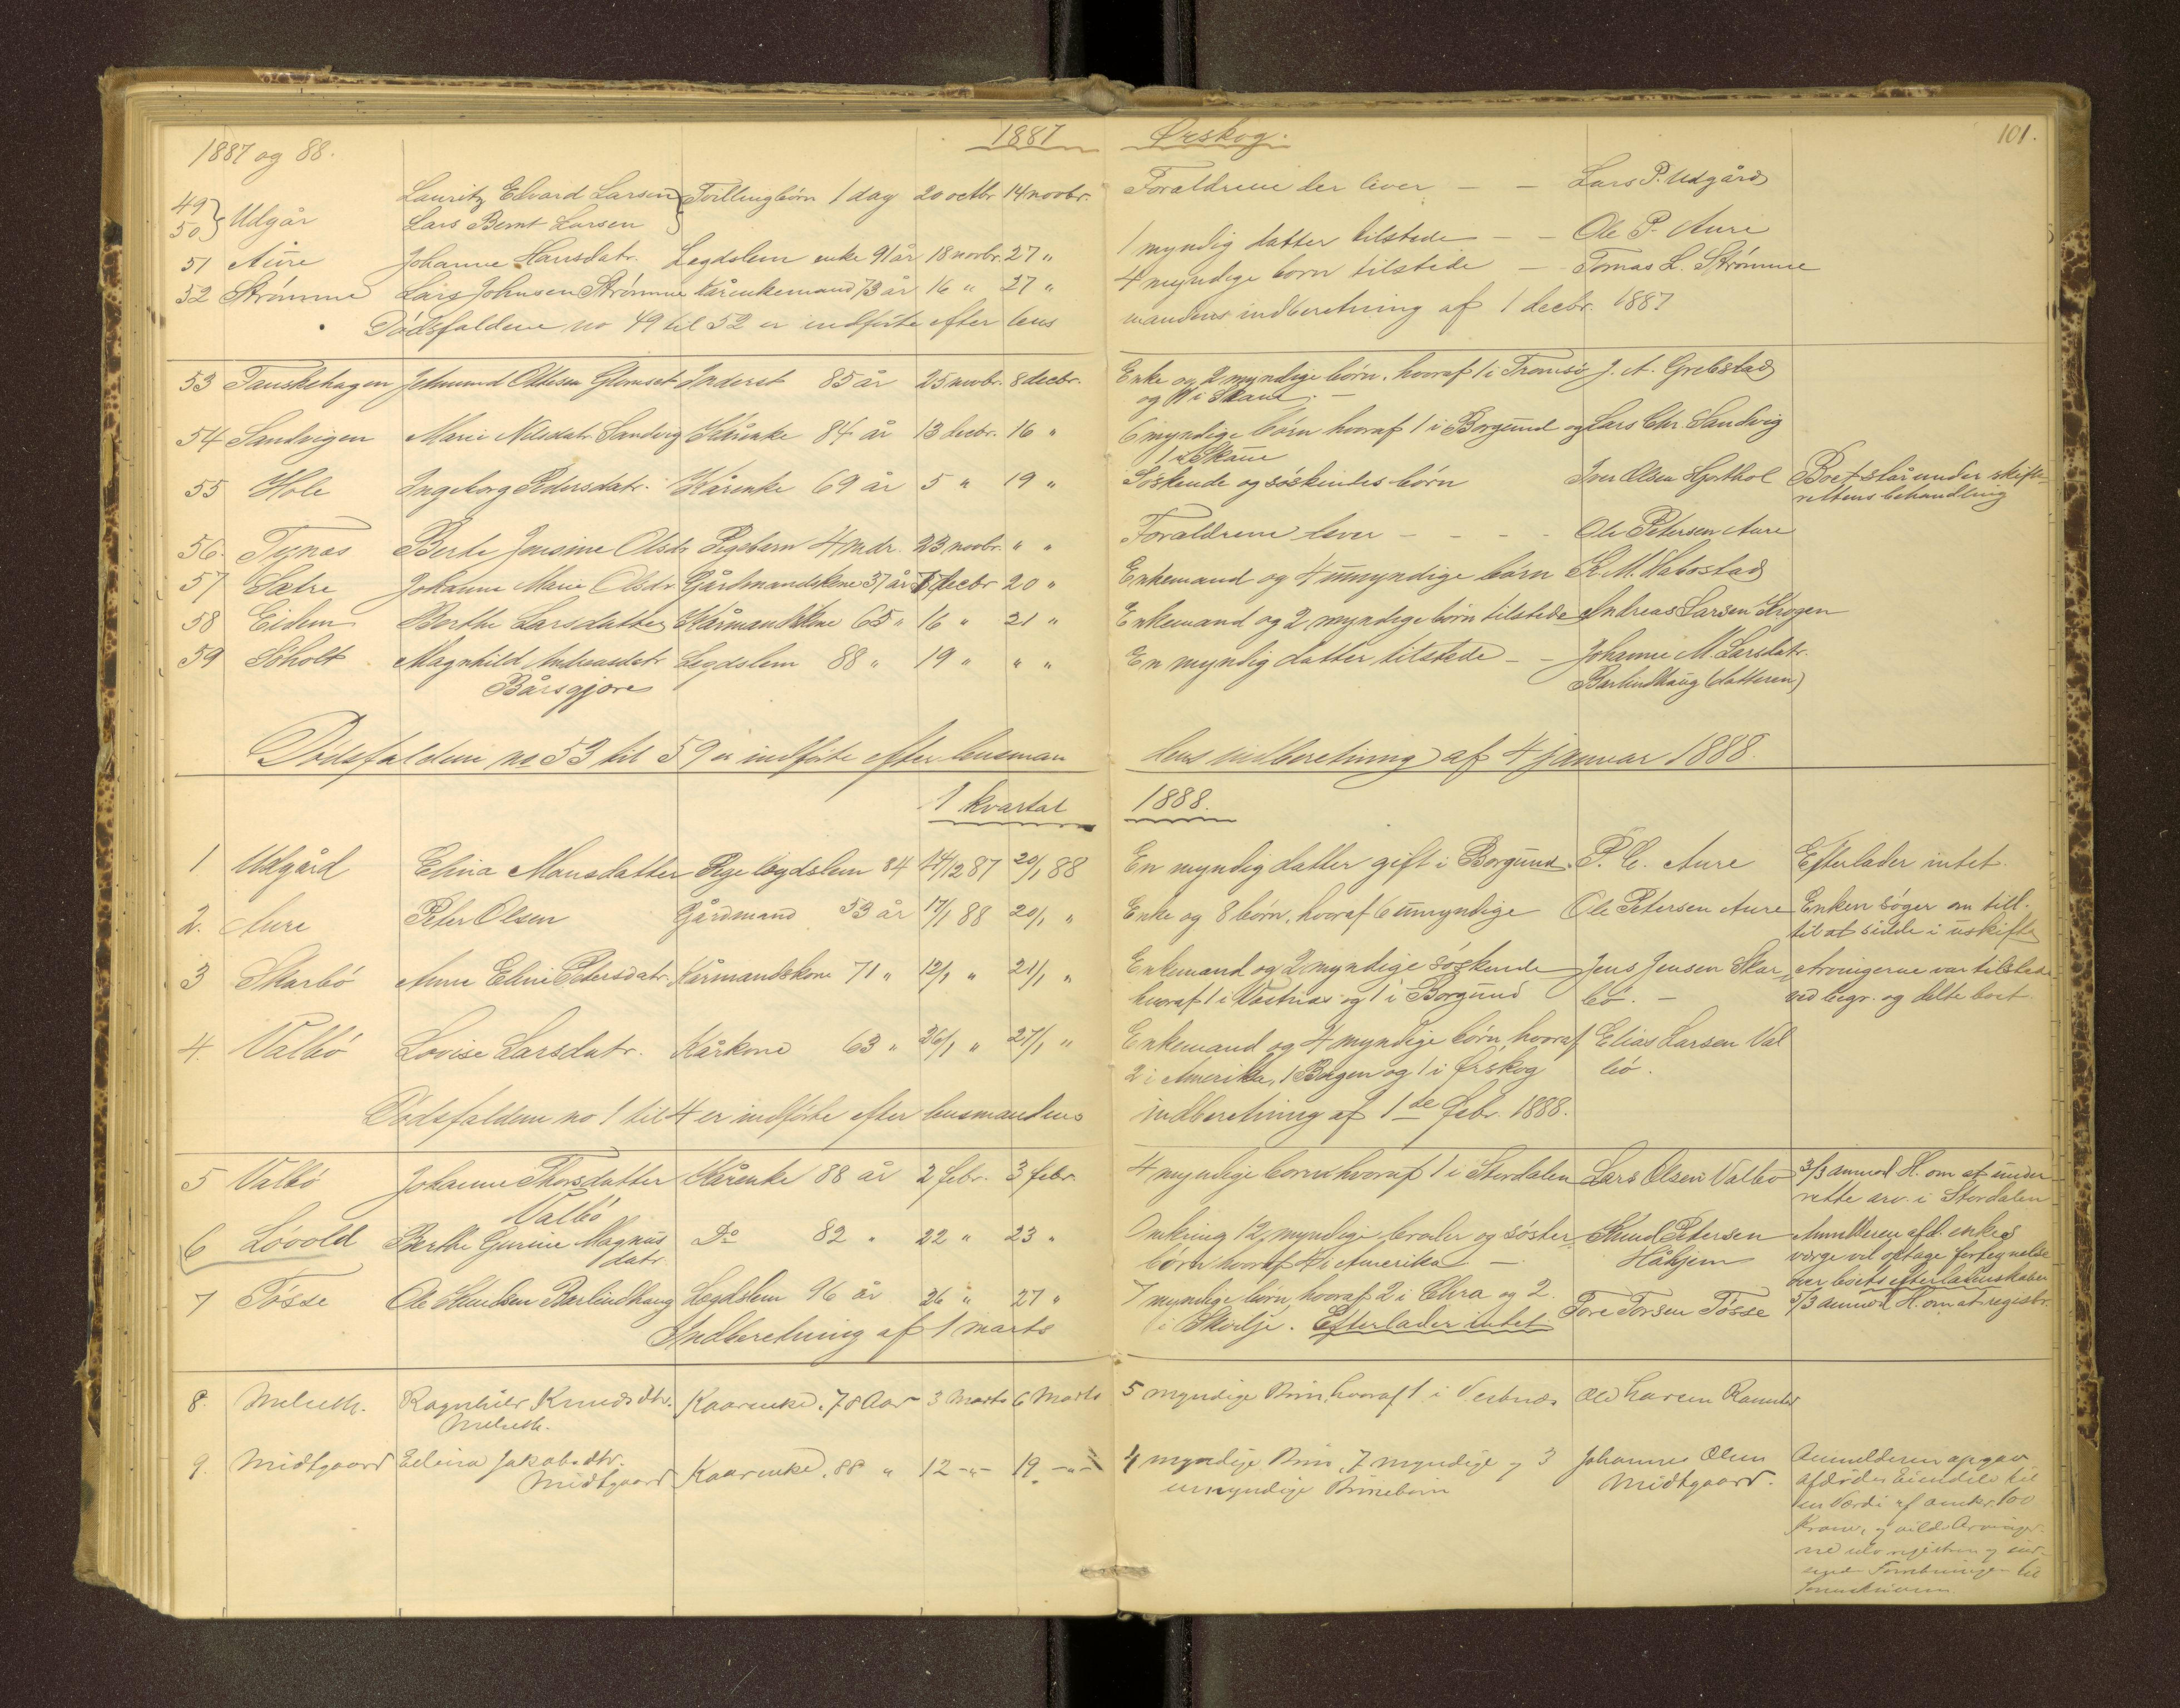 1887 og 88. 1887 Ørskog. 101.
49 50 } Udgår Lauritz Edvard Larsen } Tvillingbörn 1 dag 20 octbr 14 novbr. Forældrene der lever — — Lars P. Udgård
Lars Bernt Larsen
51 Aure Johanne Hansdatr. Legdslem enke 91 år 18 novbr. 27 " 1 myndig datter tilstede — — Ole P. Aure
52 Strömme Lars Johnsen Strömme Kårenkemand 73 år 16 " 27 " 4 myndige born tilstede — Tomas L. Strömme
Dödsfaldene no 49 til 52 er indförte efter lens mandens indberetning af 1 decbr. 1887
53 Tauskehagen Jetmund Ottesen Glomset Inderst 85 år 25 novbr. 8 decbr. Enke og 2 myndige börn, hvoraf 1 i Tromsö J. A. Grebstad
og 1 i Skaue. —
54 Sandvigen Marie Nilsdatr. Sandvig Kårenke 84 år 13 decbr. 16 " 6 myndige börn hvoraf 1 i Borgund og Lars Chr. Sandvig
1 i Skaue
55 Hole Ingeborg Pedersdatr. Kårenke 69 år 5 " 19 " Söskende og söskendes börn Iver Olsen Hjorthol Boet står under skifte-
rettens behandling
56. Tynæs Berte Jensine Olsdr Pigebarn 4 mdr. 23 novbr. " " Forældrene lever — — — Ole Petersen Aure
57 Sætre Johanne Marie Olsdr Gårdmandskone 37 år decbr 20 " Enkemand og 4 umyndige börn K. M. Vabostad
58 Eidem Berthe Larsdatter Kårmandskone 65 " 16 " 21 " Enkemand og 2 myndige börn tilstede Andreas Larsen Krogen
59 Söholt Magnhild Andreasdatr Legdslem 88 " 19 " " " En myndig datter tilstede — — Johanne M. Larsdatr.
Bårsgjore Barlindhaug (datteren)
Dodsfaldene no 53 til 59 er indförte efter lensman dens indberetning af 4 januar 1888.
1 kvartal 1888.
1 Udgård Elina Monsdatter Pige legdslem 84 14/12 87 20/1 88 En myndig datter gift i Borgund. P. C. Aure Efterlader intet.
2. Aure Peter Olsen Gårdmand 53 år 17/1 88 20/1 " Enke og 8 börn, hvoraf 6 umyndige Ole Petersen Aure Enken söger om till.
til at sidde i uskifte
3 Skarbö Anne Eline Petersdatr. Kårmandskone 71 " 12/1 " 21/1 " Enkemand og 2 myndige söskende Jens Jensen Skar= Arvingerne var tilstede
hvoraf 1 i Vestnæs og 1 i Borgund bö. — ved begr. og delte boet.
4. Valbö Lovise Larsdatr. Kårkone 63 " 26/1 " 27/1 " Enkemand og 4 myndige börn hvoraf Elias Larsen Val
2 i Amerika, 1 Bergen og 1 i Ørskog bö.
Dödsfaldene no 1 til 4 er indförte efter lensmandens indberetning af 1de febr. 1888.
5 Valbö Johanne Thorsdatter Kårenke 88 år 2 febr. 3 febr. 4 myndige born hvoraf 1 i Stordalen Lars Olsen Valbo 3/3 anmod. H. om at under
Valbö rette arv. i Stordalen
6 Lövold Berthe Gurine Magnus Do 82 " 22 " 23 " Omkring 12 myndige broder og söster Knud Petersen Anmelderen afd. enkes
datr. börn hvoraf 4 i Amerika — Håhjem værge vil optage fortegnelse
over boets efterladenskaber
7 Fösse Ole Knudsen Barlindhaug Legdslem 96 år 26 " 27 " 7 myndige börn, hvoraf 2 i Ekra og 2. Tore Torsen Fösse 5/3 anmod. H. om at registr.
Indberetning af 1 marts i Skodje. Efterlader intet
8. Melseth. Ragnhild Knudsdtr. Kaarenke. 78 Aar 3 Marts 6 Marts 5 myndige Börn, hvoraf 1 i Vestnæs Ole Larsen
Melseth.
9. Midtgaard Edina Jakobsdtr. Kaarenke. 88 " 12 -"- 19. -"- 4 myndige Börn, 7 myndige og 3 Johannes Olsen Anmelderen opgav
Midtgaard umyndige Börnebörn Midtgaard. afdödes Eiendele til
en Værdi af omkr. 100
Kroner, og vilde Arvinger-
ne selv registrere og ind-
sende Forretningen til
Sorenskriveren.